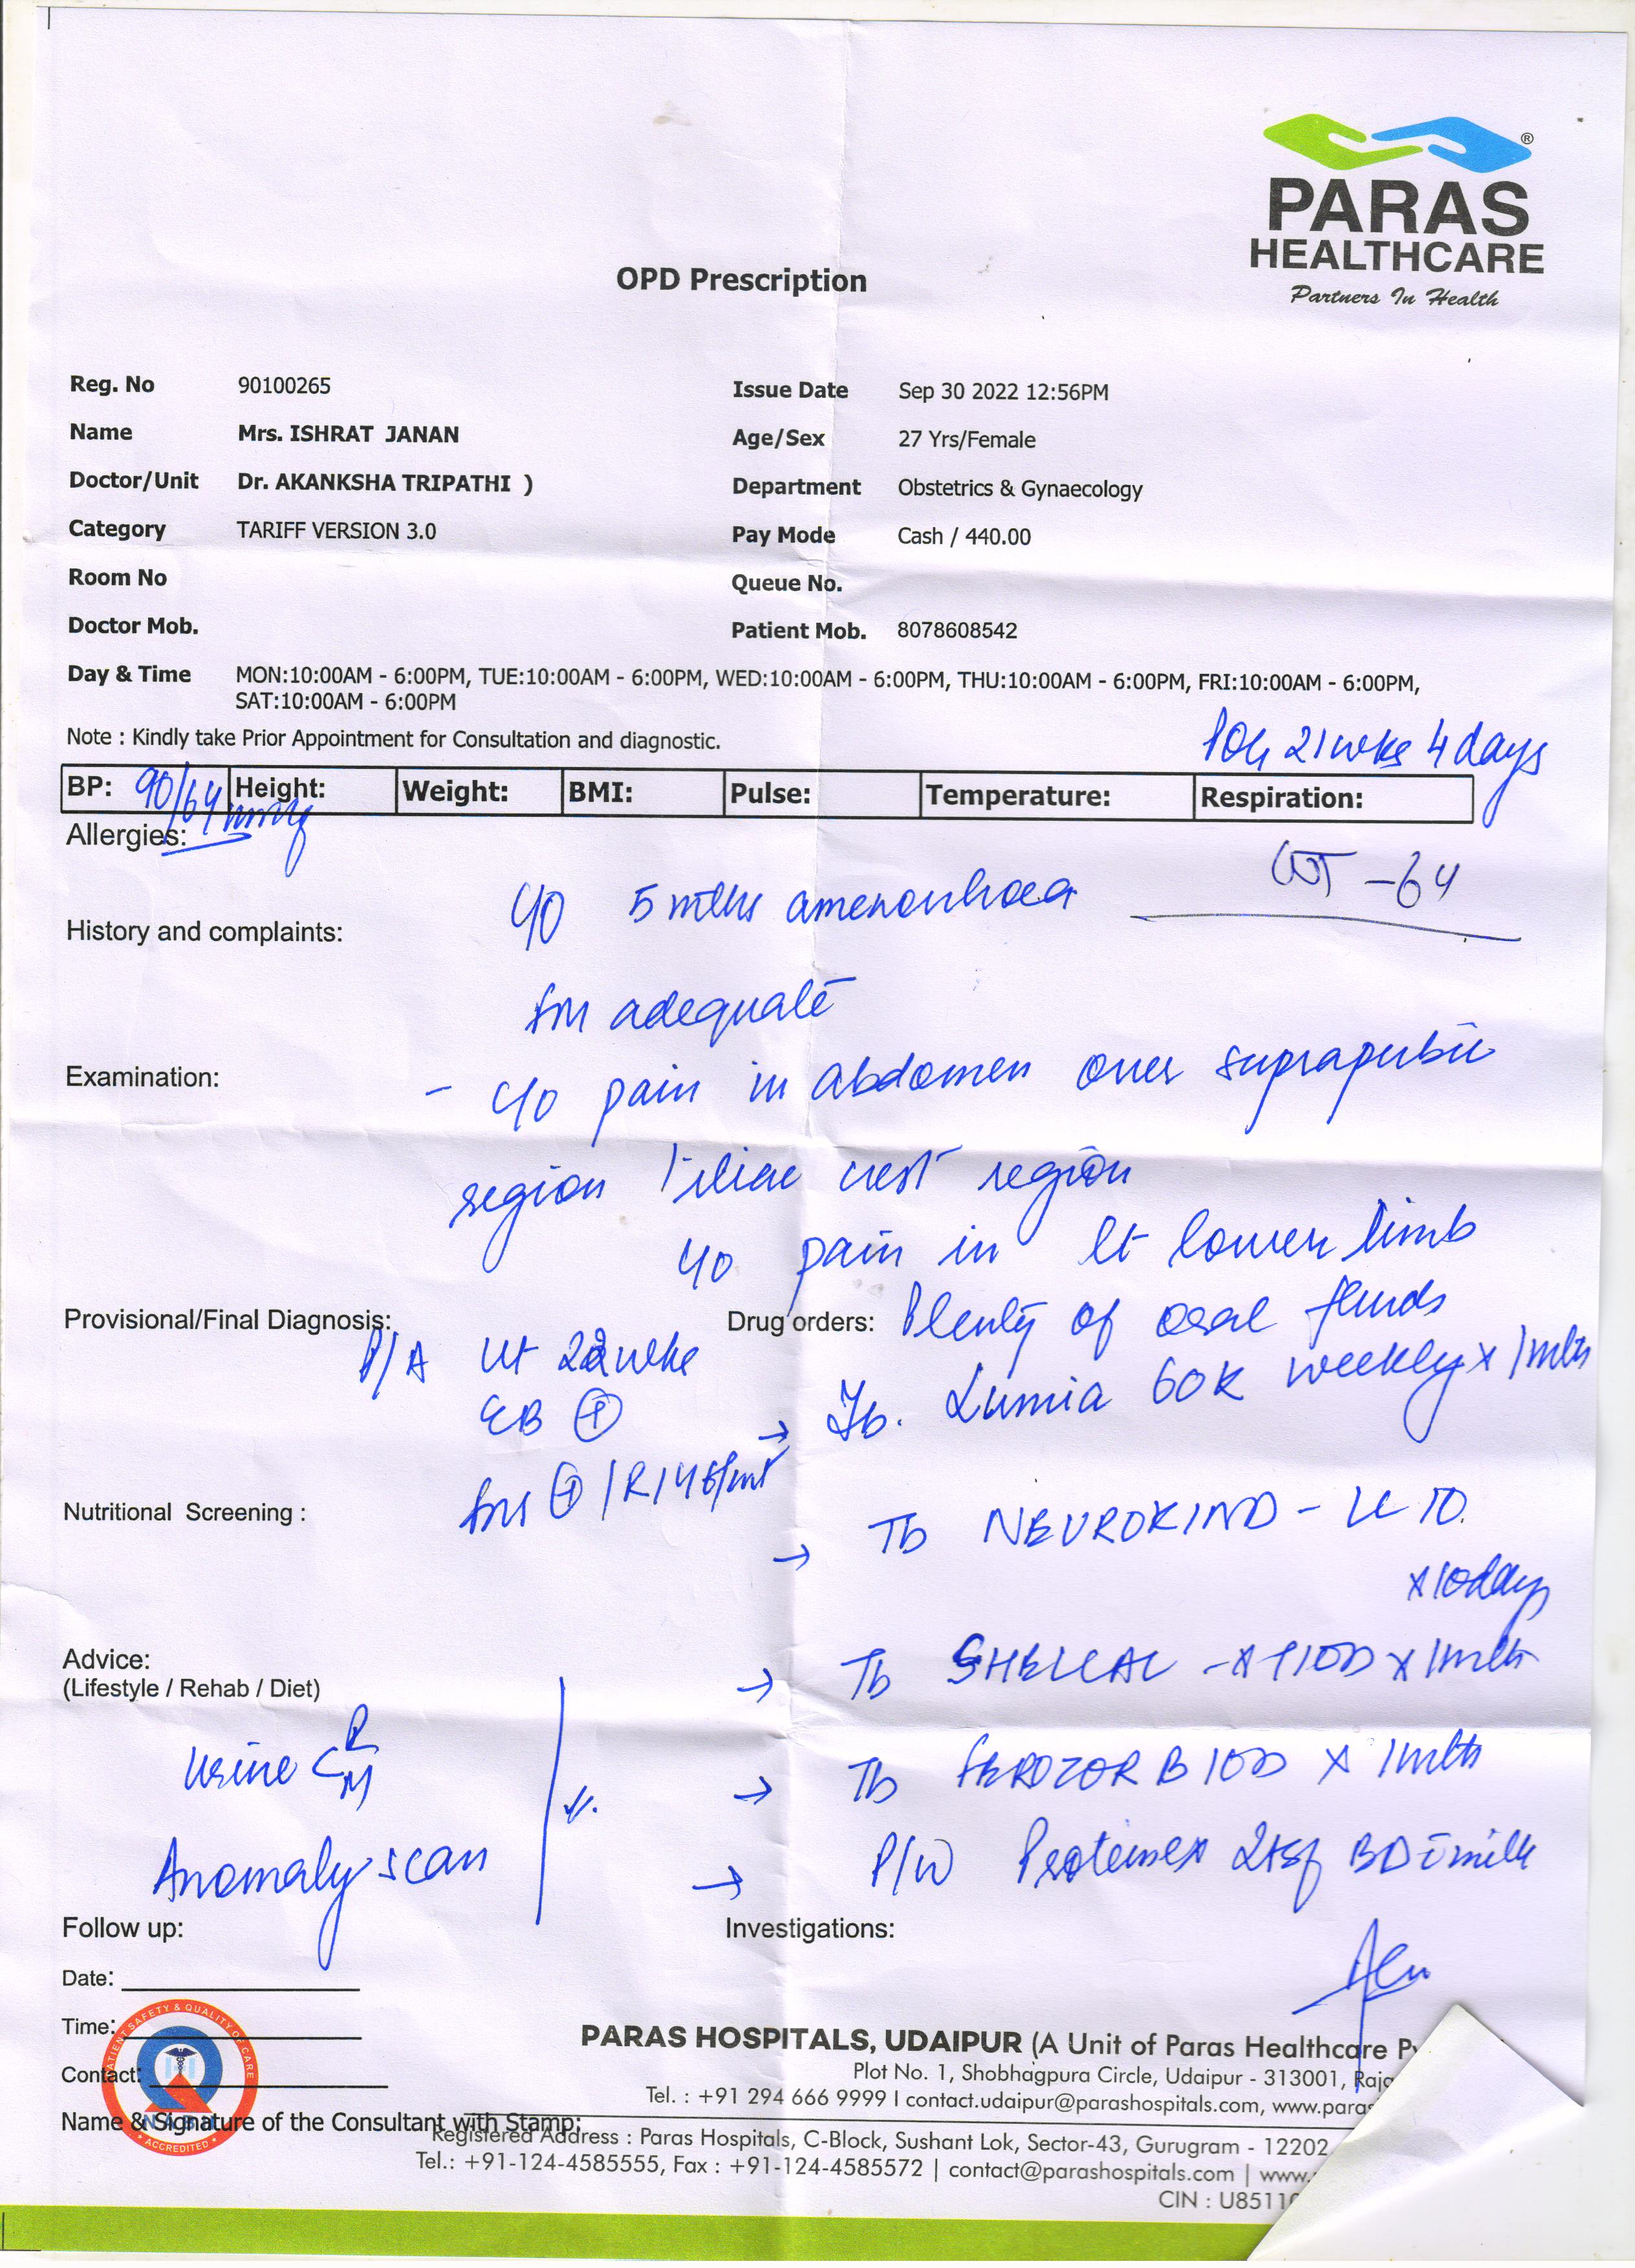 PARAS
HEALTHCARE
Partners In Health
OPD Prescription
Reg. No 90100265 Issue Date Sep 30 2022 12:56PM
Name Mrs. ISHRAT JANAN Age/Sex 27 Yrs/Female
Doctor/Unit Dr. AKANKSHA TRIPATHI ) Department Obstetrics & Gynaecology
Category TARIFF VERSION 3.0 Pay Mode Cash / 440.00
Room No Queue No.
Doctor Mob. Patient Mob. 8078608542
Day & Time MON:10:00AM - 6:00PM, TUE:10:00AM - 6:00PM, WED:10:00AM - 6:00PM, THU:10:00AM - 6:00PM, FRI:10:00AM - 6:00PM,
SAT:10:00AM - 6:00PM
Note : Kindly take Prior Appointment for Consultation and diagnostic.
POG 21 wks 4 days
BP: 90/64 mmHg Height: Weight: BMI: Pulse: Temperature: Respiration:
Allergies:
WT - 64
History and complaints: C/O 5 mths amenorrhoea
FM adequate
Examination: - C/O pain in abdomen over suprapubic
region iliac crest region
C/O pain in lt lower limb
Provisional/Final Diagnosis: Drug orders: Plenty of oral fluids
P/A Ut 22 wks
Tb. Lumia 60K weekly x 1 mth
EB +
FHS + / R / 146/mt
Nutritional Screening :
→ Tb NEUROKIND - LC
x 10 days
Advice:
(Lifestyle / Rehab / Diet)
→ Tb SHELCAL - XT 1 OD x 1 mth
Urine C R M
→ Tb FEROZOR B 1 OD x 1 mth
Anomaly scan
→ P/W Proteinex 2 tsf BD c milk
Follow up: Investigations:
Date:
Time:
Contact:
Name & Signature of the Consultant with Stamp:
PATIENT SAFETY & QUALITY OF CARE
NABH
• ACCREDITED •
PARAS HOSPITALS, UDAIPUR (A Unit of Paras Healthcare
Plot No. 1, Shobhagpura Circle, Udaipur - 313001,
Tel. : +91 294 666 9999 I contact.udaipur@parashospitals.com, www.paras
Registered Address : Paras Hospitals, C-Block, Sushant Lok, Sector-43, Gurugram - 12202
Tel.: +91-124-4585555, Fax : +91-124-4585572 | contact@parashospitals.com | www.
CIN : U8511